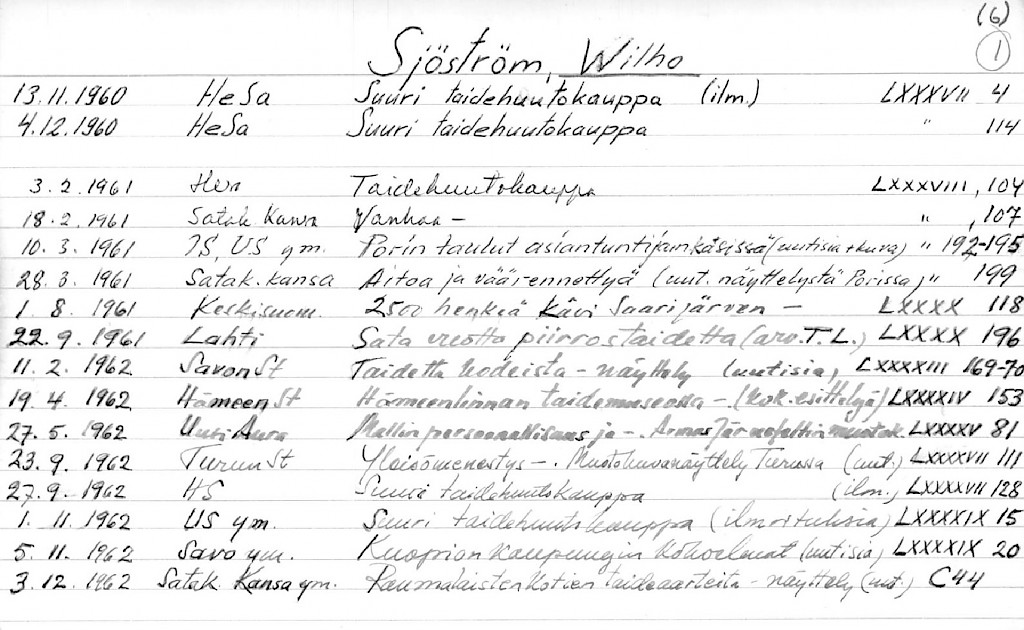 (6)
1
Sjöström, Wilho
13.11.1960 HeSa Suuri taidehuutokauppa (ilm.) LXXXVII 4
4.12.1960 HeSa Suuri taidehuutokauppa " 114
3.2.1961 Taidehuutokauppa LXXXVIII, 104
18.2.1961 Satak. Kansa Vanhaa - " , 107
10.3.1961 IS, US ym. Porin taulut asiantuntijain käsissä (uutisia + kuva) " 192-195
28.3.1961 Satak. kansa Aitoa ja väärennettyä (uut. näyttelystä Porissa) " 199
1.8.1961 Keskisuom. 2500 henkeä kävi Saarijärven - LXXXX 118
22.9.1961 Lahti Sata vuotta piirrostaidetta (arv. T.L.) LXXXX 196
11.2.1962 SavonSt Taidetta kodeista - näyttely (uutisia) LXXXXIII 169-70
19.4.1962 HämeenSt Hämeenlinnan taidemuseossa - (kok. esittelyä) LXXXXIV 153
27.5.1962 Uusi Aura Mallin persoonallisuus ja -. Armas Järnefeltin muotok. LXXXXV 81
23.9.1962 TurunSt Yleisömenestys -. Muotokuvanäyttely Turussa (uut.) LXXXXVII 111
27.9.1962 HS Suuri taidehuutokauppa (ilm.) LXXXXVII 128
1.11.1962 US ym. Suuri taidehuutokauppa (ilm. LXXXXIX 15
5.11.1962 Savo ym. Kuopion kaupungin kokoelmat (uutisia) LXXXXIX 20
3.12.1962 Satak. Kansa ym. Raumalaisten kotien taideaarteita - näyttely (uut.) C 44